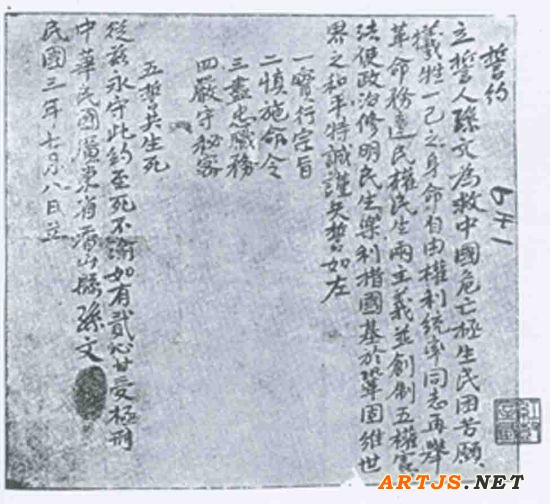 誓約
立誓人孫文為救中國危亡拯生民困苦願
犧牲一己之身命自由權利統率同志再舉
革命務達民權民生兩主義並創制五權憲
法使政治修明民生樂利措國基於鞏固維世
界之和平特誠謹矢誓如左
一實行宗旨
二慎施命令
三盡忠職務
四嚴守秘密
五誓共生死
從茲永守此約至死不渝如有貳心甘受極刑
中華民國廣東省香山縣孫文
民國三年七月八日立
149
ARTJS.NET